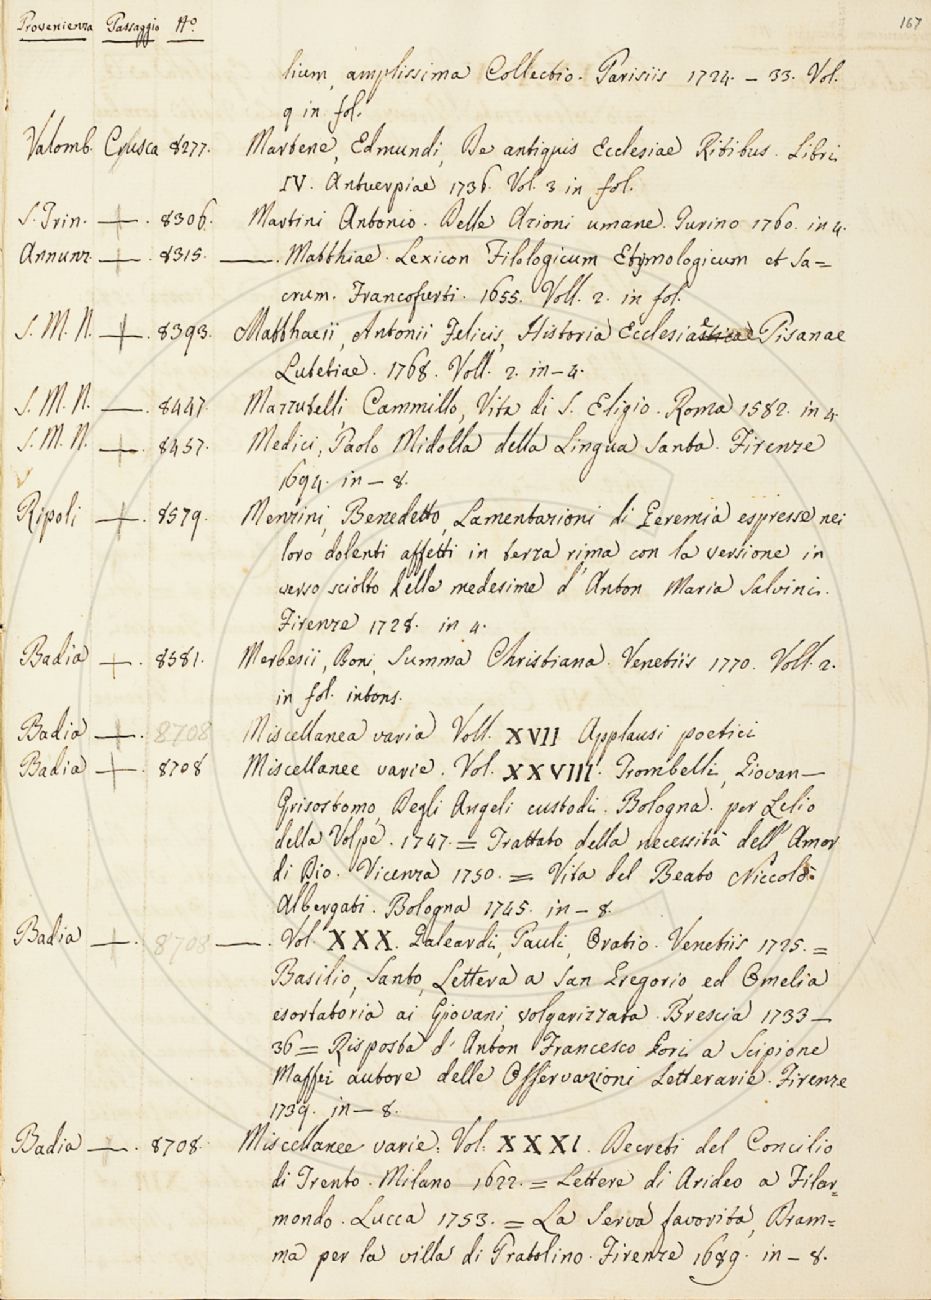 Provenienza Passaggio N.º 167
lium amplissima Collectio. Parisiis 1724. – 33. Vol.
9 in fol.
Valomb. Crusca 8277. Martene, Edmundi, De antiquis Ecclesiae Ritibus. Libri
IV. Antuerpiae 1736. Vol. 3 in fol.
S. Trin. —|—. 8306. Martini Antonio. Delle Azioni umane. Turino 1760. in 4.
Annunz. —|—. 8315. ——. Matthiae. Lexicon Filologicum Etymologicum et Sa=
crum. Francofurti. 1655. Voll. 2. in fol.
S. M. N. —|—. 8393. Matthaeii, Antonii Felicis, Historia Ecclesiae Pisanae
Lutetiae. 1768. Voll. 2. in – 4.
S. M. N. ——. 8447. Mazzutelli Cammillo, Vita di S. Eligio. Roma 1582. in 4.
S. M. N. —|—. 8457. Medici, Paolo Midolla della Lingua Santa. Firenze
1694. in – 8.
Ripoli —|—. 8579. Menzini, Benedetto, Lamentazioni di Geremia espresse nei
loro dolenti affetti in terza rima con la versione in
verso sciolto delle medesime d'Anton Maria Salvini.
Firenze 1728. in 4.
Badia —|—. 8581. Merbesii, Boni, Summa Christiana. Venetiis 1770. Voll. 2.
in fol. intons.
Badia —|—. 8708 Miscellanea varia Voll. XVII Applausi poetici
Badia —|—. 8708 Miscellanee varie. Vol. XXVIII. Trombelli, Giovan—
Grisostomo, Degli Angeli custodi. Bologna. per Lelio
della Volpe. 1747. = Trattato della necessità dell' Amor
di Dio. Vicenza 1750. = Vita del Beato Niccolò
Albergati. Bologna 1745. in – 8.
Badia —|—. 8708 ——. Vol. XXX. Galeardi, Pauli, Oratio. Venetiis 1725. =
Basilio, Santo, Lettera a San Gregorio ed Omelia
esortatoria ai Giovani, volgarizzata. Brescia 1733 –
36 = Risposta d' Anton Francesco Gori a Scipione
Maffei autore delle Osservazioni Letterarie. Firenze
1739. in – 8.
Badia ——. 8708. Miscellanee varie. Vol. XXXI. Decreti del Concilio
di Trento. Milano 1622. = Lettere di Arideo a Filar=
mondo. Lucca 1753. = La Serva favorita, Dram=
ma per la villa di Pratolino. Firenze 1689. in – 8.